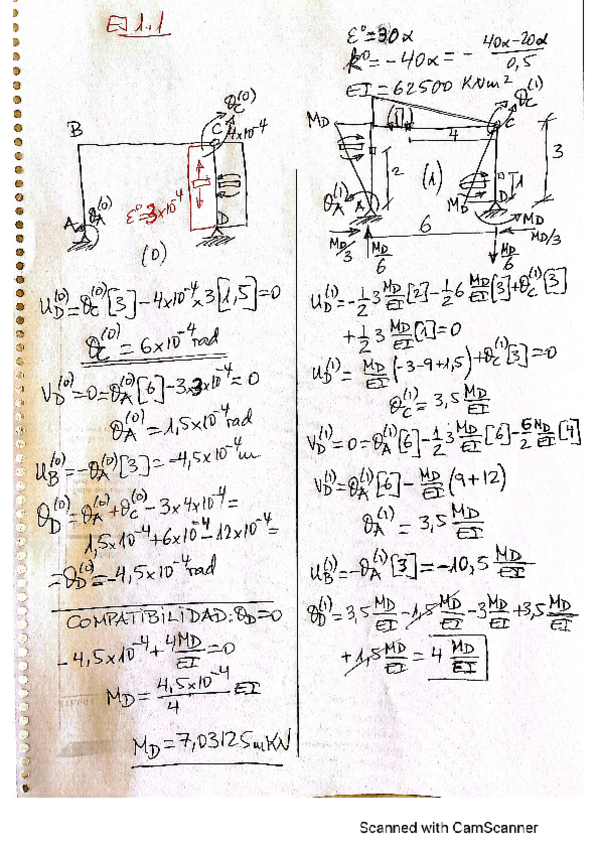 EJ 1.1
ε⁰=30α
k⁰=-40α=-(40α-20α)/0,5
EI=62500 KNm²
θc⁽⁰⁾
B
C
4x10⁻⁴
ε⁰=3x10⁻⁴
A
θA⁽⁰⁾
D
(0)
MD
θc⁽¹⁾
C
4
2
(1)
1
3
θA⁽¹⁾
A
MD
D
MD
MD/3
6
MD/3
MD/6
MD/6
uD⁽⁰⁾=θc⁽⁰⁾[3]-4x10⁻⁴x3[1,5]=0
θc⁽⁰⁾=6x10⁻⁴rad
VD⁽⁰⁾=0=θA⁽⁰⁾[6]-3x3x10⁻⁴=0
θA⁽⁰⁾=1,5x10⁻⁴rad
uB⁽⁰⁾=-θA⁽⁰⁾[3]=-4,5x10⁻⁴m
θD⁽⁰⁾=θA⁽⁰⁾+θc⁽⁰⁾-3x4x10⁻⁴=
1,5x10⁻⁴+6x10⁻⁴-12x10⁻⁴=
=θD⁽⁰⁾=-4,5x10⁻⁴rad
COMPATIBILIDAD:θD=0
-4,5x10⁻⁴+4MD/EI=0
MD=4,5x10⁻⁴/4 EI
MD=7,03125mKN
uD⁽¹⁾=-1/2 3 MD/EI[2]-1/2 6 MD/EI[3]+θc⁽¹⁾[3]
+1/2 3 MD/EI[1]=0
uD⁽¹⁾=MD/EI(-3-9+1,5)+θc⁽¹⁾[3]=0
θc⁽¹⁾=3,5 MD/EI
VD⁽¹⁾=0=θA⁽¹⁾[6]-1/2 3 MD/EI[6]-6/2 MD/EI[4]
VD⁽¹⁾=θA⁽¹⁾[6]-MD/EI(9+12)
θA⁽¹⁾=3,5 MD/EI
uB⁽¹⁾=-θA⁽¹⁾[3]=-10,5 MD/EI
θD⁽¹⁾=3,5 MD/EI-1,5 MD/EI-3 MD/EI+3,5 MD/EI
+1,5 MD/EI=4 MD/EI
Scanned with CamScanner